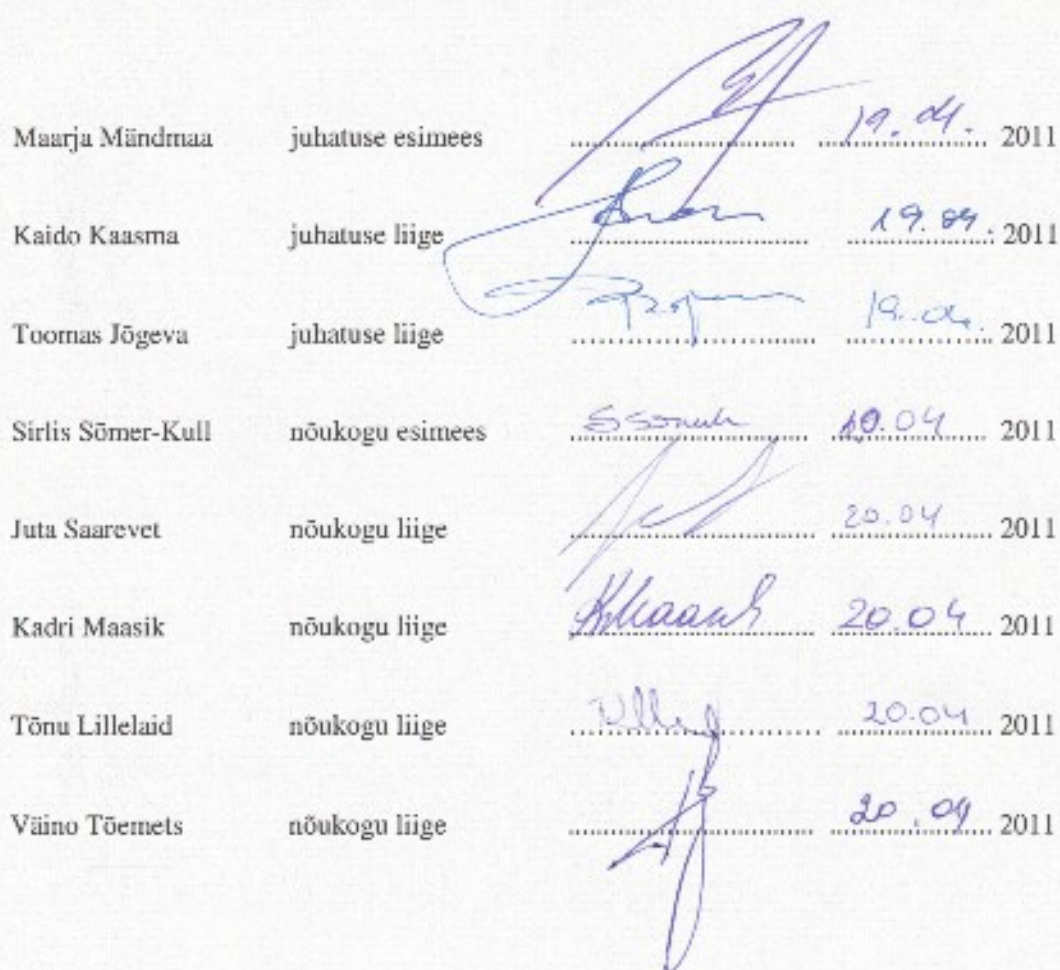 Maarja Mändmaa juhatuse esimees 19. 04. 2011
Kaido Kaasma juhatuse liige 19. 04. 2011
Toomas Jõgeva juhatuse liige 19. 04. 2011
Sirlis Sõmer-Kull nõukogu esimees 04 2011
Juta Saarevet nõukogu liige 20.04 2011
Kadri Maasik nõukogu liige 20.04 2011
Tõnu Lillelaid nõukogu liige 20.04 2011
Väino Tõemets nõukogu liige 20.04 2011